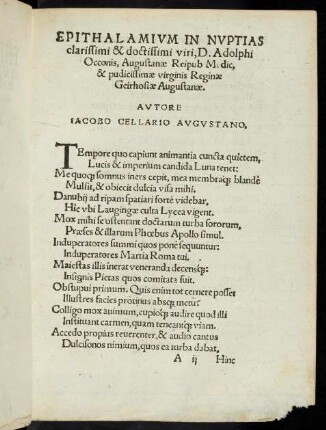 EPITHALAMIVM IN NVPTIAS
clarissimi & doctissimi viri, D. Adolphi
Occonis, Augustanæ Reipub M. dic,
& pudicissimæ virginis Reginæ
Geirhoflæ Augustanæ.
AVTORE
IACOBO CELLARIO AVGVSTANO,
TEmpore quo capiunt animantia cuncta quietem,
Lucis & imperium candida Luna tenet:
Me quoqꝫ somnus iners cepit, mea membraqꝫ blandè
Mulsit, & obiecit dulcia visa mihi.
Danubij ad ripam spatiari fortè videbar,
Hic vbi Laugingæ culta Lycea vigent.
Mox mihi se ostentant doctarum turba sororum,
Præses & illarum Phœbus Apollo simul.
Induperatores summi quos ponè sequuntur:
Induperatores Martia Roma tui.
Maiestas illis inerat veneranda decensqꝫ:
Insignis Pietas quos comitata fuit.
Obstupui primum. Quis enim tot cernere posset
Illustres facies protinus absqꝫ metu?
Colligo mox animum, cupioqꝫ audire quod illi
Instituant carmen, quam teneantqꝫ viam.
Accedo propius reuerenter, & audio cantus
Dulcisonos nimium, quos ea turba dabat,
A ij Hinc